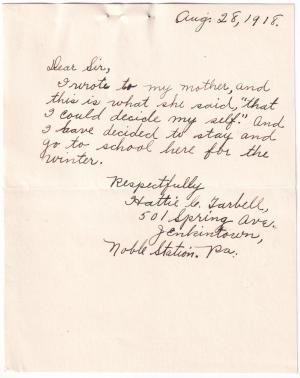 Aug. 28, 1918.
Dear Sir,
I wrote to my mother, and
this is what she said, "that
I could decide my self." And
I have decided to stay and
go to school here for the
winter.
Respectfully
Hattie C. Tarbell,
501 Spring Ave.
Jenkintown,
Noble Station. Pa.